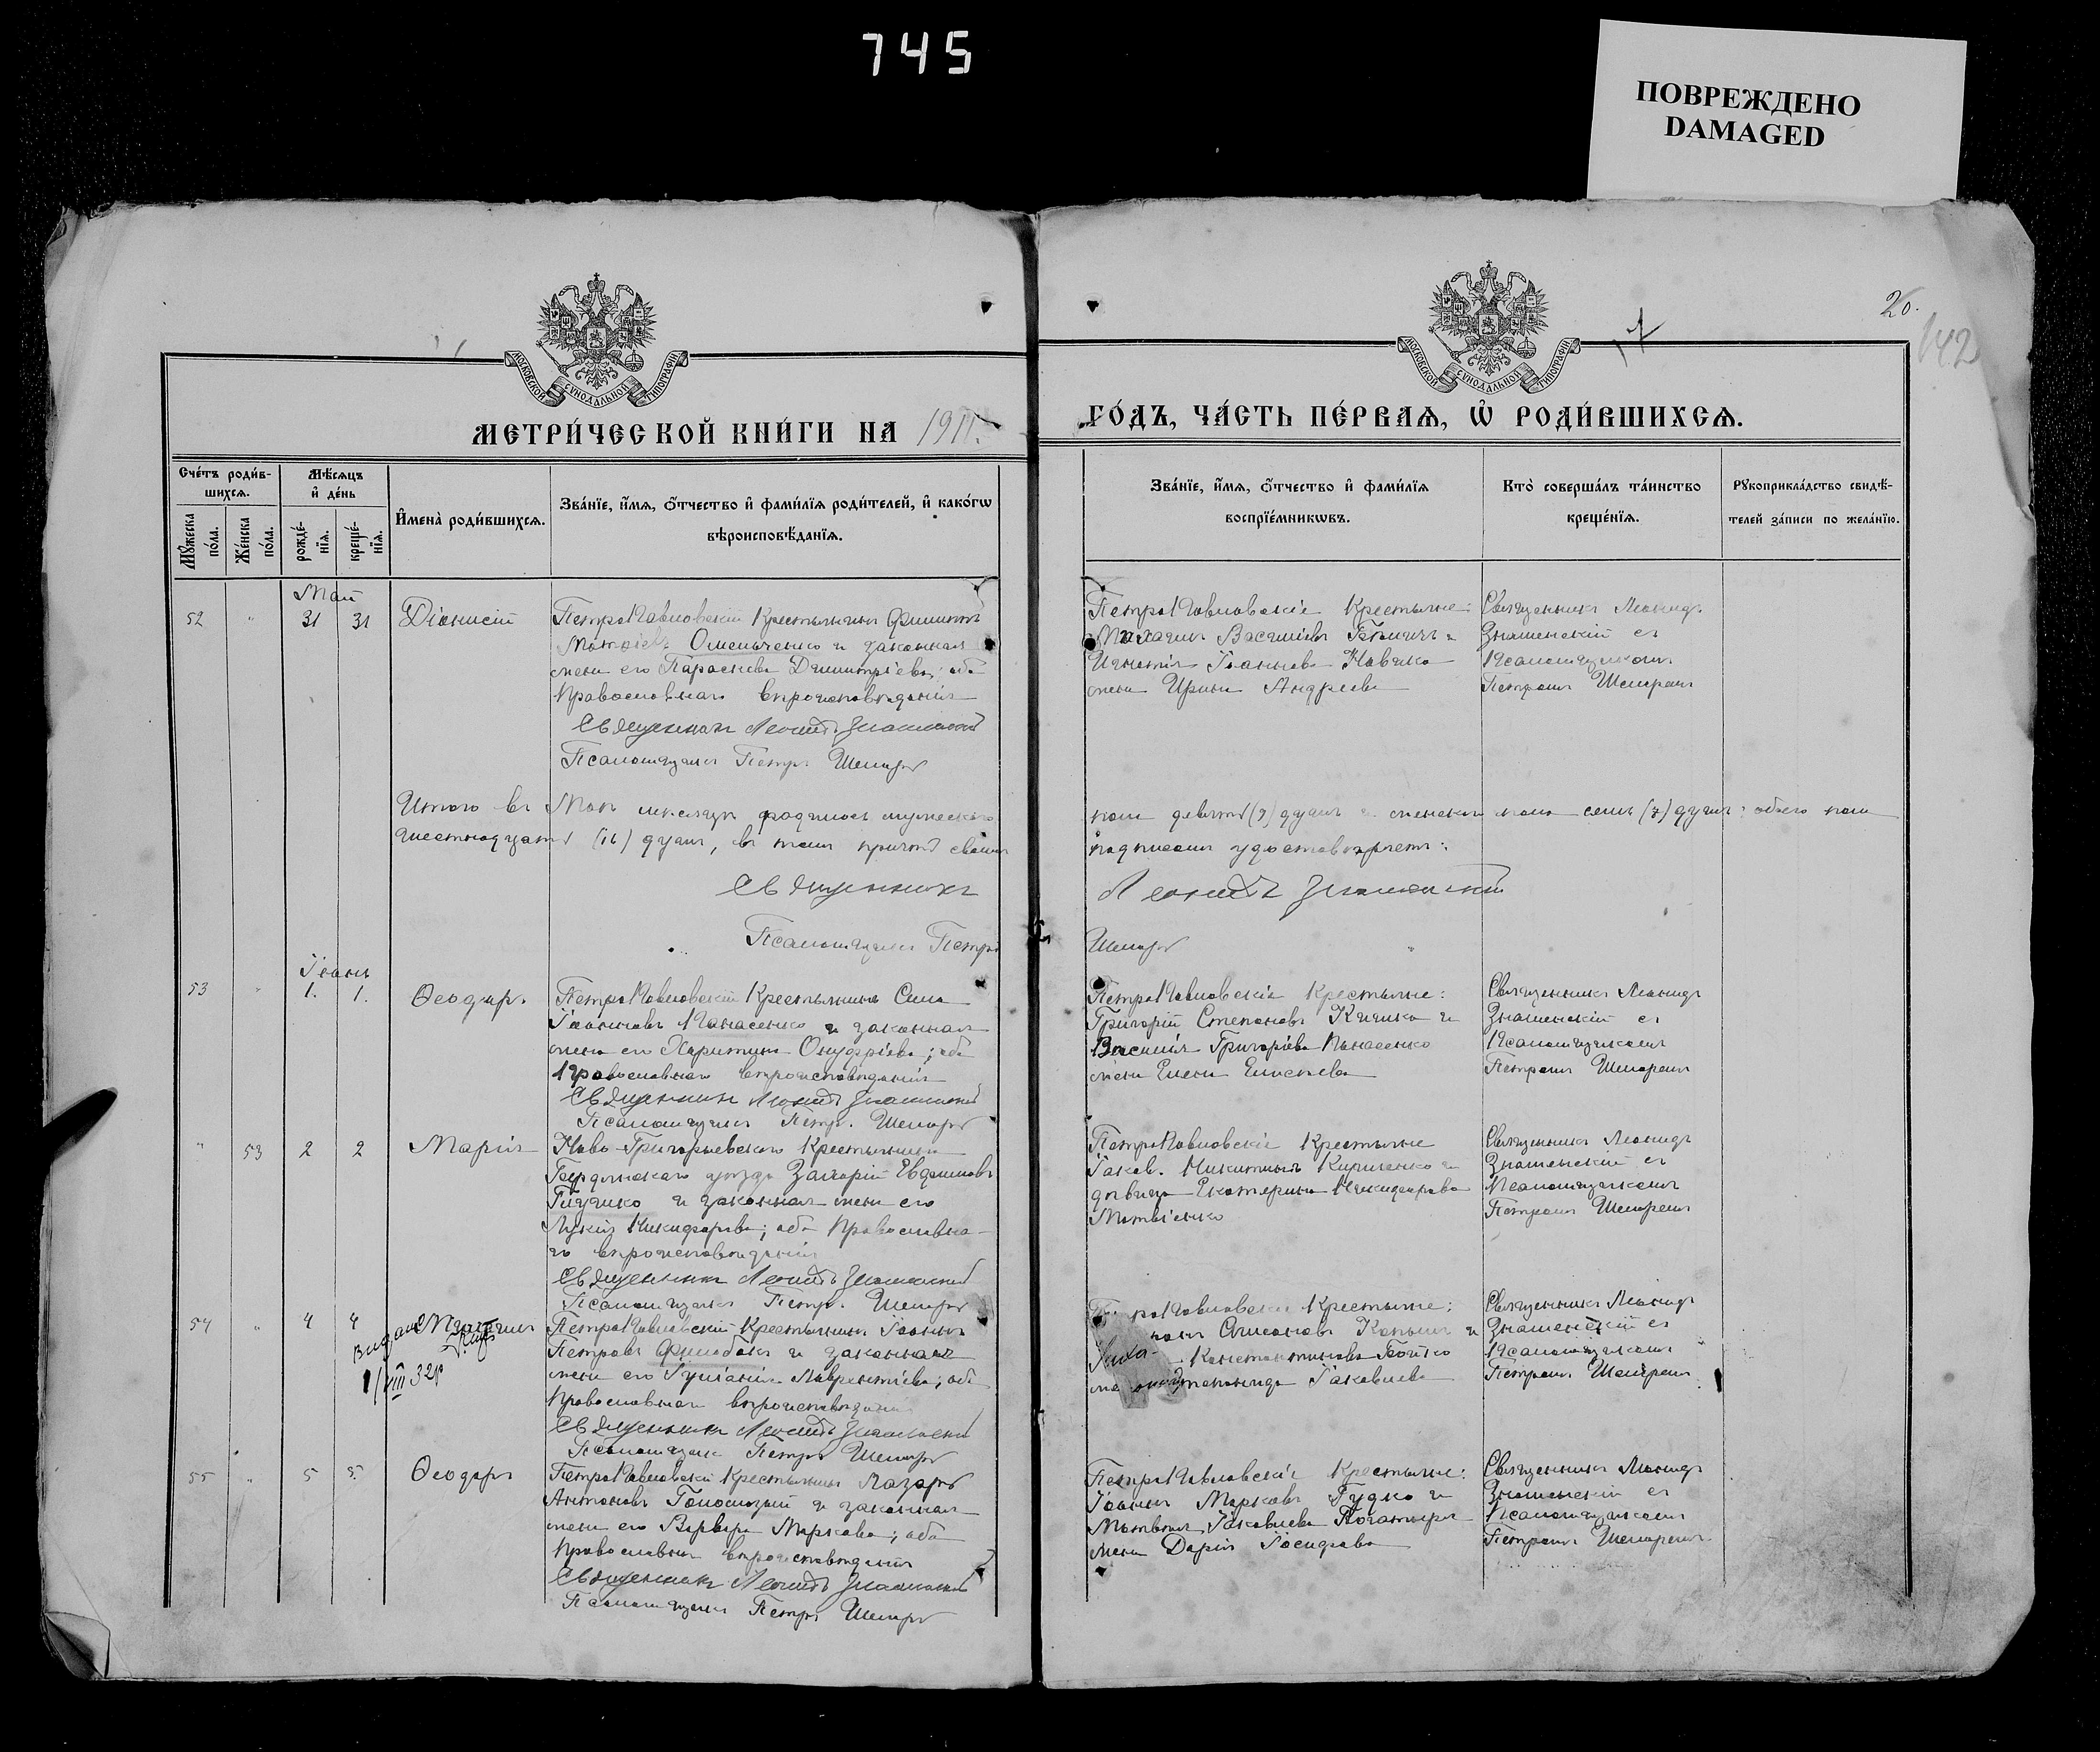 745
ПОВРЕЖДЕНО
DAMAGED
20.
142
МОСКОВСКОЙ СѴНОДАЛЬНОЙ ТИПОГРАФІИ
МОСКОВСКОЙ СѴНОДАЛЬНОЙ ТИПОГРАФІИ
МЕТРИ́ЧЕСКОЙ КНИ́ГИ НА 1911.
ГО́ДЪ, ЧА́СТЬ ПЕ́РВАѦ, Ѡ҆ РОДИ́ВШИХСѦ.
Сче́тъ роди́в-
шихсѧ.
Мꙋ́жеска по́ла.
Же́нска по́ла.
Мѣ́сѧцъ и҆ де́нь
рожде́-
нїѧ.
креще́-
нїѧ.
И҆мена̀ роди́вшихсѧ.
Зва́нїе, и҆́мѧ, ѻ҆́тчество и҆ фами́лїѧ роди́телей, и҆ како́гѡ
вѣроисповѣ́данїѧ.
Зва́нїе, и҆́мѧ, ѻ҆́тчество и҆ фами́лїѧ
воспрїе́мникѡвъ.
Кто̀ соверша́лъ та́инство
креще́нїѧ.
Рꙋкоприкла́дство свидѣ́-
телей за́писи по жела́нїю.
Май
52 " 31 31 Діонисій
Петропавловскій Крестьянинъ Филиппъ
Омельченко и законная
жена его Параскева Димитріева; оба
Православнаго вѣроисповѣданія
Священникъ Леонидъ Знаменскій
Псаломщикъ Петръ
Петропавловскіе Крестьяне:
Василіевъ и
Игнатія Іоаннова Новака
жена Ирина Андреева
Священникъ Леонидъ
Знаменскій съ
Псаломщикомъ
Петромъ
Итого въ Маѣ мѣсяцѣ родилось мужескаго
пола девять (9) душъ и женскаго пола семь (7) душъ: обоего пола
шестнадцать (16) душъ, въ томъ причтъ своимъ
подписомъ удостовѣряетъ:
Священникъ Леонидъ Знаменскій
Псаломщикъ Петръ
Іюнь
53 " 1. 1. Ѳеодоръ.
Петропавловскій Крестьянинъ Сила
Іоанновъ Панасенко и законная
жена его Харитина Онуфріева; оба
Православнаго вѣроисповѣданія
Священникъ Леонидъ Знаменскій
Псаломщикъ Петръ
Петропавловскіе Крестьяне:
Григорій Степановъ и
Василія Григоріева Панасенко
жена Елена Елисеева
Священникъ Леонидъ
Знаменскій съ
Псаломщикомъ
Петромъ
" 53 2 2 Марія
Ново-Григорьевскаго Крестьянинъ
Бердянскаго уѣзда Захарій Евфимовъ
и законная жена его
Лукія Никифорова; оба Православна-
го вѣроисповѣданія
Священникъ Леонидъ Знаменскій
Псаломщикъ Петръ
Петропавловскіе Крестьяне
Іаковъ Никитинъ Кириченко и
дѣвица Екатерина Никифорова
Матвіенко
Священникъ Леонидъ
Знаменскій съ
Псаломщикомъ
Петромъ
54 " 4 4
VIII 32р
Петропавловскій Крестьянинъ Іоаннъ
Петровъ и законная
жена его Іуліанія Лаврентіева; оба
Православнаго вѣроисповѣданія
Священникъ Леонидъ Знаменскій
Псаломщикъ Петръ
Крестьяне:
и
Константинова Бойко
Іаковлева
Священникъ Леонидъ
Знаменскій съ
Псаломщикомъ
Петромъ
55 " 5 5. Ѳеодоръ
Петропавловскій Крестьянинъ Лазарь
Антоновъ и законная
жена его Варвара Маркова; оба
Православнаго вѣроисповѣданія
Священникъ Леонидъ Знаменскій
Псаломщикъ Петръ
Петропавловскіе Крестьяне:
Іоаннъ Марковъ Гудко и
Матвѣя Іаковлева
жена Дарія Іосифова
Священникъ Леонидъ
Знаменскій съ
Псаломщикомъ
Петромъ